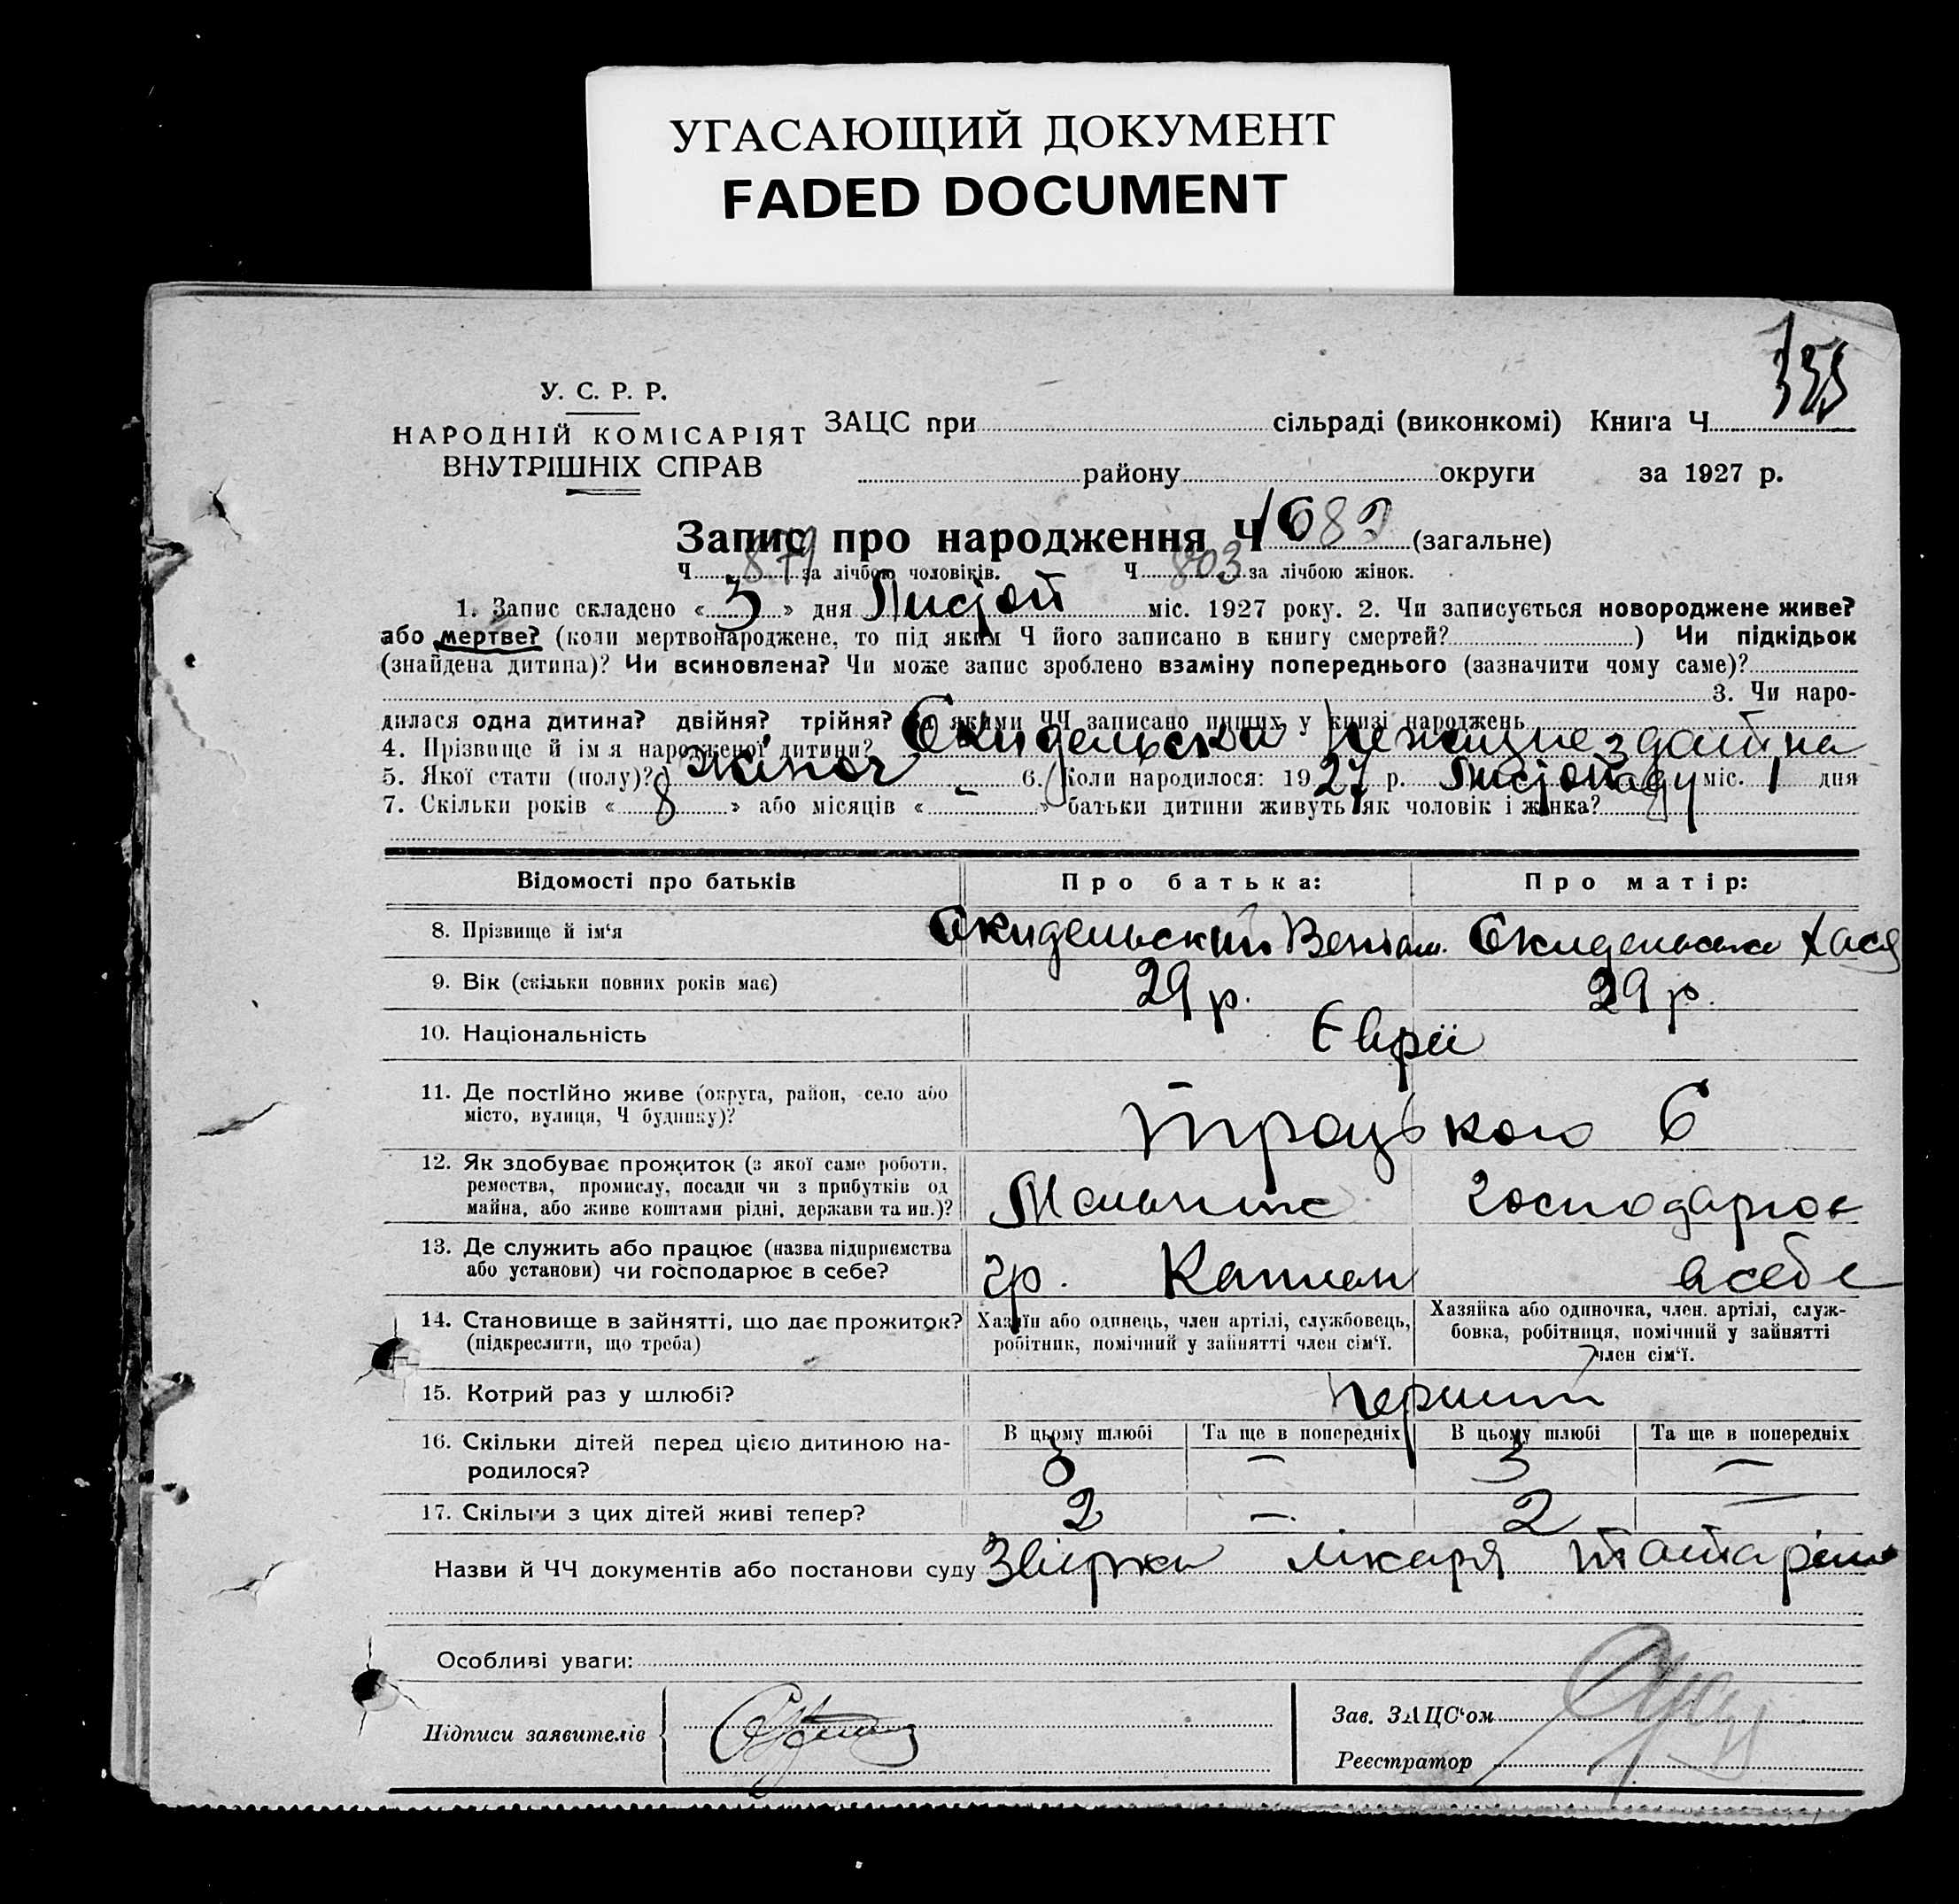 УГАСАЮЩИЙ ДОКУМЕНТ
FADED DOCUMENT
У. С. Р. Р.
НАРОДНІЙ КОМІСАРІЯТ
ВНУТРІШНІХ СПРАВ
ЗАЦС при сільраді (виконкомі) Книга Ч
району округи за 1927 р.
Запис про народження Ч 1689 (загальне)
Ч 879 за лічбою чоловіків. Ч 803 за лічбою жінок.
1. Запис складено « 3 » дня Лисјоп міс. 1927 року. 2. Чи записується новороджене живе?
або мертве? (коли мертвонароджене, то під яким Ч його записано в книгу смертей? ) Чи підкідьок
(знайдена дитина)? Чи всиновлена? Чи може запис зроблено взаміну попереднього (зазначити чому саме)?
3. Чи наро-
дилася одна дитина? двійня? трійня? якими ЧЧ записано инших у книзі народжень
4. Прізвище й ім я народженої дитини? Скидельська Нежиттездатна
5. Якої стати (полу)? жіноч 6. Коли народилося: 1927 р. Лисјопаду міс. 1 дня
7. Скільки років « 8 » або місяців « – » батьки дитини живуть як чоловік і жінка?
Відомості про батьків
Про батька:
Про матір:
8. Прізвище й ім‘я Скидельський Веніам. Скидельська Хася
9. Вік (скільки повних років має) 29 р. 29 р.
10. Національність Євреї
11. Де постІйно живе (округа, район, село або
місто, вулиця, Ч будинку)?
Троцького 6
12. Як здобуває прожиток (з якої саме роботи,
ремества, промислу, посади чи з прибутків од
майна, або живе коштами рідні, держави та ин.)?
господарює
13. Де служить або працює (назва підприємства
або установи) чи господарює в себе?
гр. Каплан
в себе
14. Становище в зайнятті, що дає прожиток?
(підкреслити, що треба)
Хазяїн або одинець, член артілі, службовець,
робітник, помічний у зайнятті член сім‘ї.
Хазяйка або одиночка, член. артілі, служ-
бовка, робітниця, помічний у зайнятті
член сім‘ї.
15. Котрий раз у шлюбі? перший
16. Скільки дітей перед цією дитиною на-
родилося?
В цьому шлюбі Та ще в попередніх В цьому шлюбі Та ще в попередніх
3 – 3 –
17. Скільки з цих дітей живі тепер? 2 – 2 –
Назви й ЧЧ документів або постанови суду лікаря
Особливі уваги:
Підписи заявителів
Зав. ЗАЦС‘ом
Реєстратор